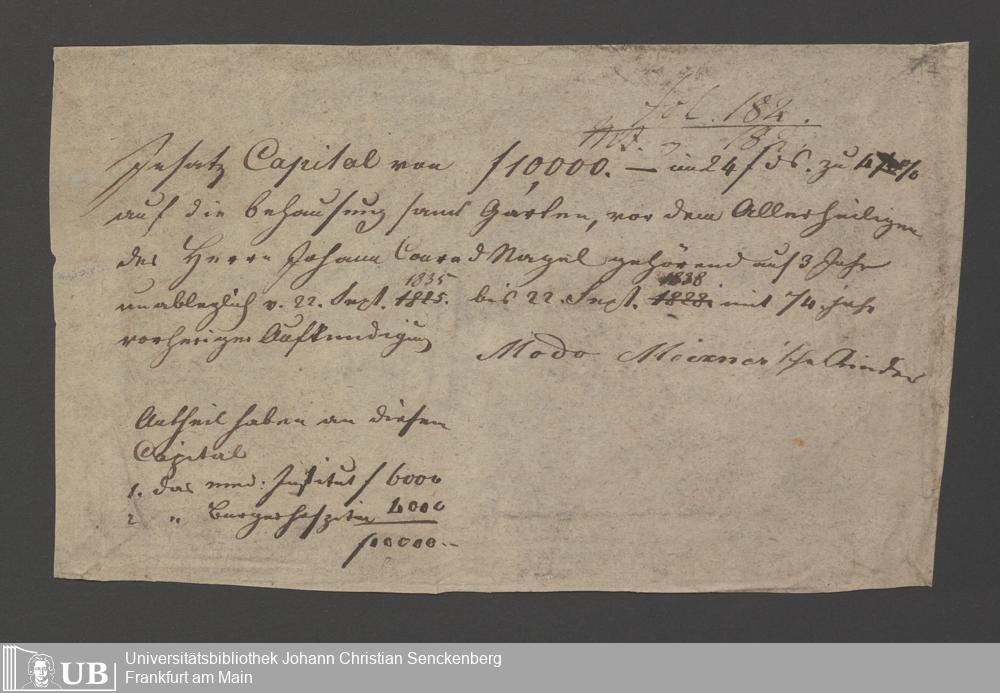 Fol. 182.
Insatz Capital von f 10,000. — im 24 f Fs. zu 4 %
auf die Behausung samt Garten, vor dem Allerheiligen
des Herrn Johann Conrad Nagel gehörend auf 3 Jahr
1835 1838
unableglich v. 22. Sept. 1825. bis 22. Sept. 1828. mit 1/4. jahr
vorheriger Aufkündigung
Modo Meixner'sche Kinder
Antheil haben an diesem
Capital
1. das med: Institut f 6000
2 " Burgerhospital 4000
f 10000.--
UB
Universitätsbibliothek Johann Christian Senckenberg
Frankfurt am Main